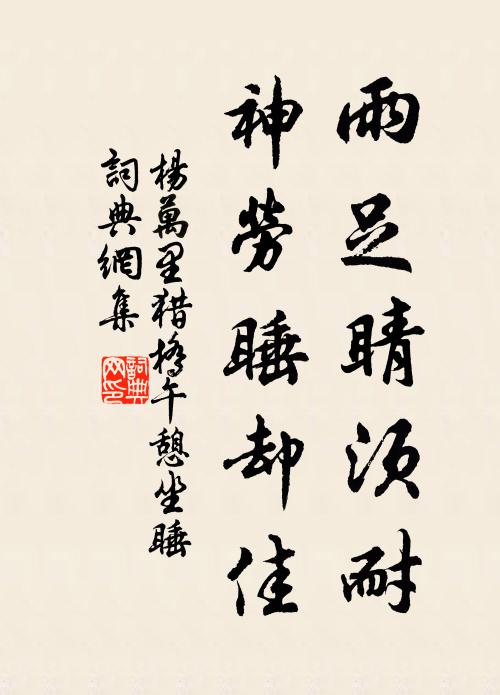 雨足晴須耐
神勞睡却佳
楊萬里猎橋午憩坐睡
詞典網集
詞典
网印